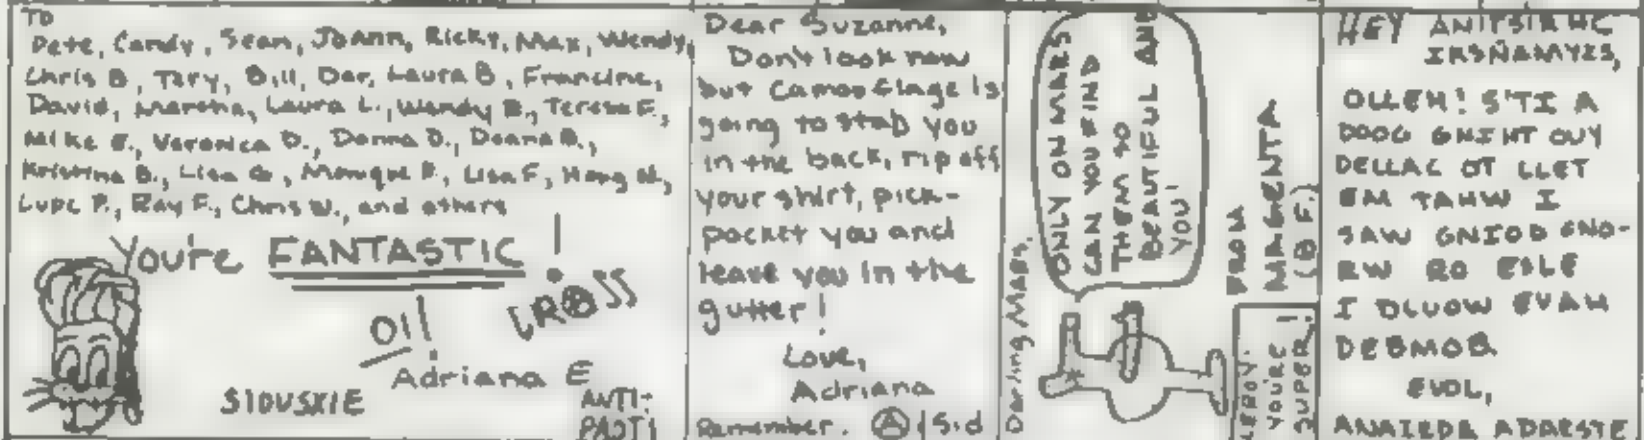 TO
Pete, Candy, Sean, JoAnn, Ricky, Max, Wendy,
Chris B, Tary, Bill, Dar, Laura B, Francine,
David, Marsha, Laura L., Wendy B., Teresa F.,
Mike E., Veronica D., Donna D., Deana B.,
Kristina B., Lisa G, Monique R., Lisa F, Hong N.,
Lupe P., Ray F., Chris W., and others
You're FANTASTIC!
OI!
Adriana E
SIOUSXIE
ANTI-
PASTI
Dear Suzanne,
Don't look now
but Camouflage is
going to stab you
in the back, rip off
your shirt, pick-
pocket you and
leave you in the
gutter!
Love,
Adriana
Remember. Ⓐ Sid
Darling Mars,
ONLY ON MARS
CAN YOU FIND
THEM SO
BEAUTIFUL AND
YOU!
FROM
MAGENTA
(B F.)
LEROY-
YOU'RE
SUPER!
HEY ANITSIRHC
OLLEH! S'TI A
DOOG GNIHT OUY
DELLAC OT LLET
EM TAHW I
SAW GNIOD GNO-
RW RO ESLE
I DLUOW EVAH
DEBMOB
EVOL,
ANAIRDA